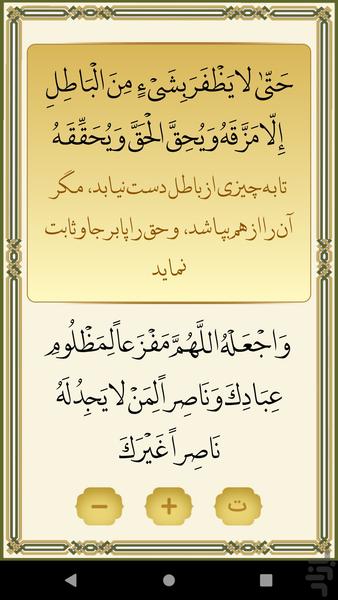 حَتّىٰ لا يَظْفَرَ بِشَیْءٍ مِنَ الْبَاطِلِ
إِلّا مَزَّقَهُ وَ يُحِقَّ الْحَقَّ وَ يُحَقِّقَهُ
تا به چیزی از باطل دست نیابد، مگر
آن را از هم بپاشد، و حق را پابرجا و ثابت
نماید
وَاجْعَلْهُ اللَّهُمَّ مَفْزَعاً لِمَظْلُومِ
عِبَادِكَ وَ نَاصِراً لِمَنْ لا يَجِدُ لَهُ
نَاصِراً غَيْرَكَ
− + ت
بازار